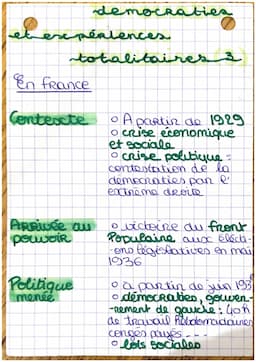 démocraties
et expériences
totalitaires 3
En France
Contexte
o A partir de 1929
o crise économique
et sociale
o crise politique =
contestation de la
démocraties par l'
extrême droite
Arrivée au
pouvoir
o victoire du Front
Populaire aux élect-
-ions législatives en mai
1936
Politique
menée
o a partir de juin 193
o démocraties, gouver-
-nement de gauche : 40h
de travail hebdomadaires
congés payés - - -
o lois sociales